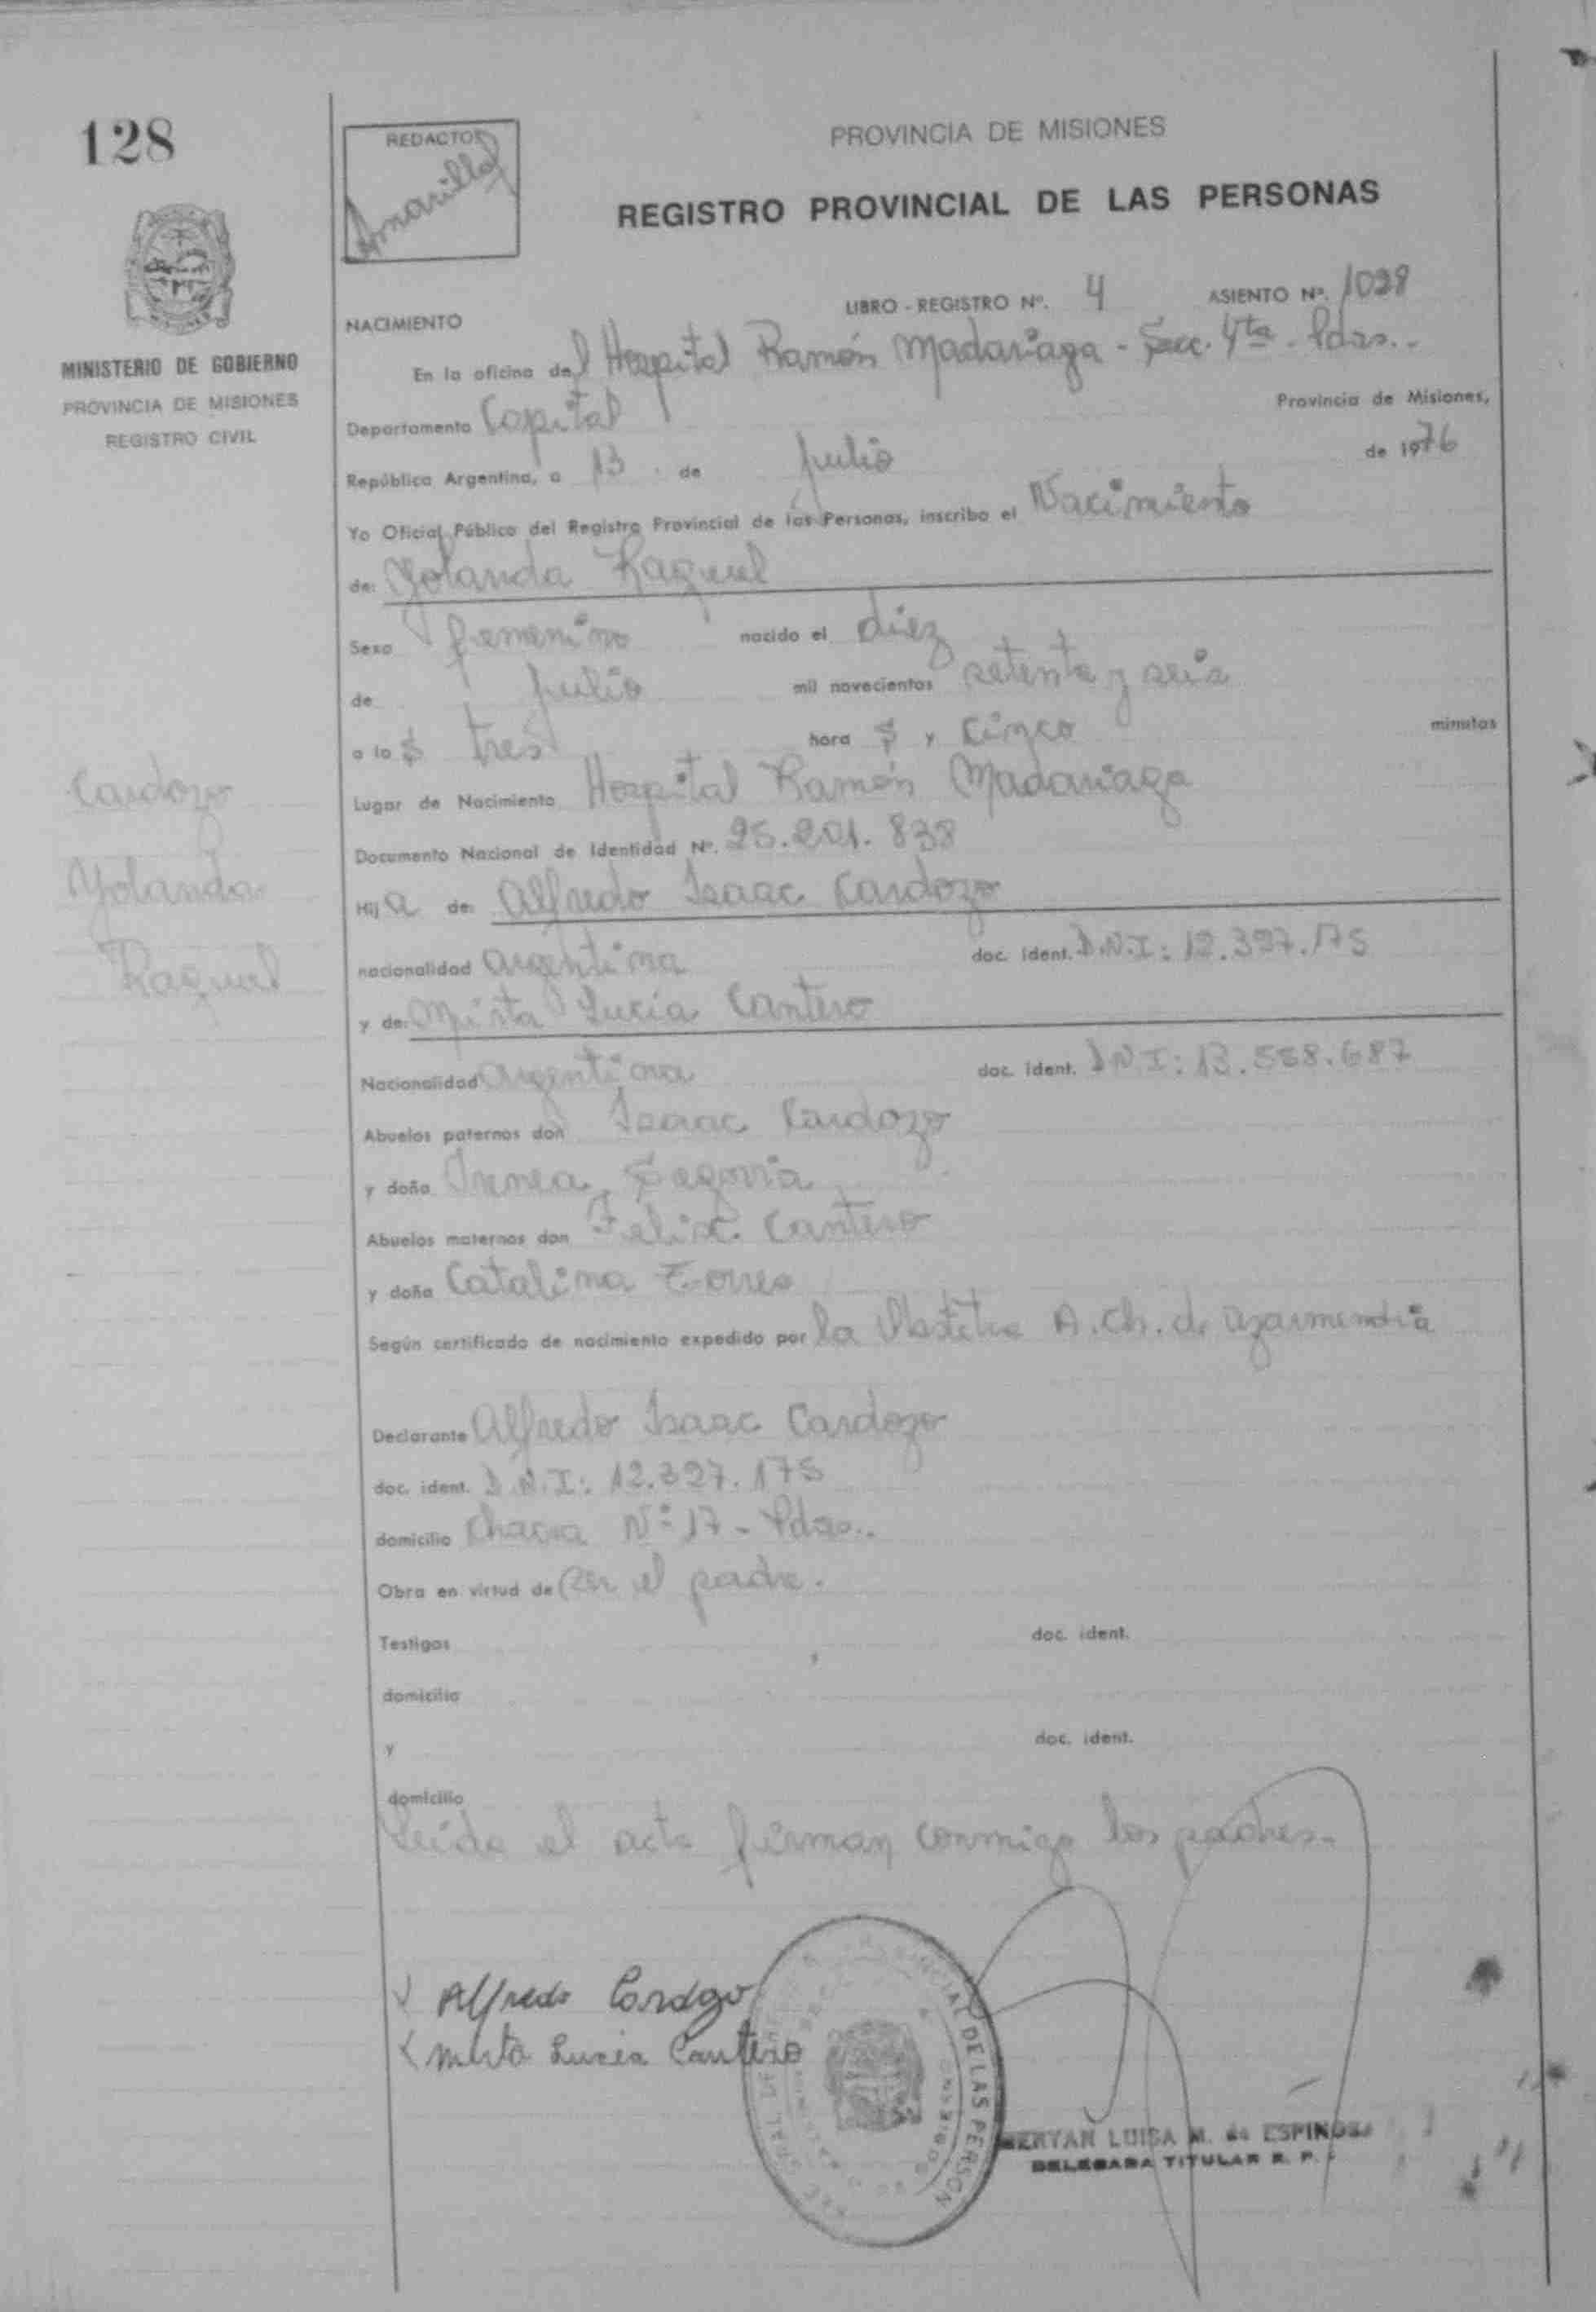 128
REDACTOR
Amarilla
PROVINCIA DE MISIONES
REGISTRO PROVINCIAL DE LAS PERSONAS
MINISTERIO DE GOBIERNO
PROVINCIA DE MISIONES
REGISTRO CIVIL
LIBRO - REGISTRO Nº. 4 ASIENTO Nº. 1028
NACIMIENTO
En la oficina del Hospital Ramón Madariaga - Secc. 4ta - Pdas..
Departamento Capital Provincia de Misiones,
República Argentina, a 13 de Julio de 1976
Yo Oficial Público del Registro Provincial de las Personas, inscribo el Nacimiento
de: Yolanda Raquel
Sexo femenino nacido el diez
de Julio mil novecientos setenta y seis
a las tres hora s y cinco minutos
Lugar de Nacimiento Hospital Ramón Madariaga
Documento Nacional de Identidad Nº. 25.201.838
Cardozo
Yolanda
Raquel
Hija de: Alfredo Isaac Cardozo
nacionalidad argentina doc. ident. D.N.I: 12.327.175
y de: Mirta Lucia Cantero
Nacionalidad argentina doc. ident. D.N.I: 13.558.687
Abuelos paternos don Isaac Cardozo
y doña Irenea Segovia
Abuelos maternos don Felix Cantero
y doña Catalina Torres
Según certificado de nacimiento expedido por la Obstetra A. Ch. de Azarmendia
Declarante Alfredo Isaac Cardozo
doc. ident. D.N.I: 12.327.175
domicilio Chacra Nº 17 - Pdas..
Obra en virtud de ser el padre.
Testigos doc. ident.
domicilio
y doc. ident.
domicilio
Leída el acta firman conmigo los padres.-
Alfredo Cardozo
Mirta Lucia Cantero
LUISA M. de ESPINOSA
DELEGADA TITULAR R. P.